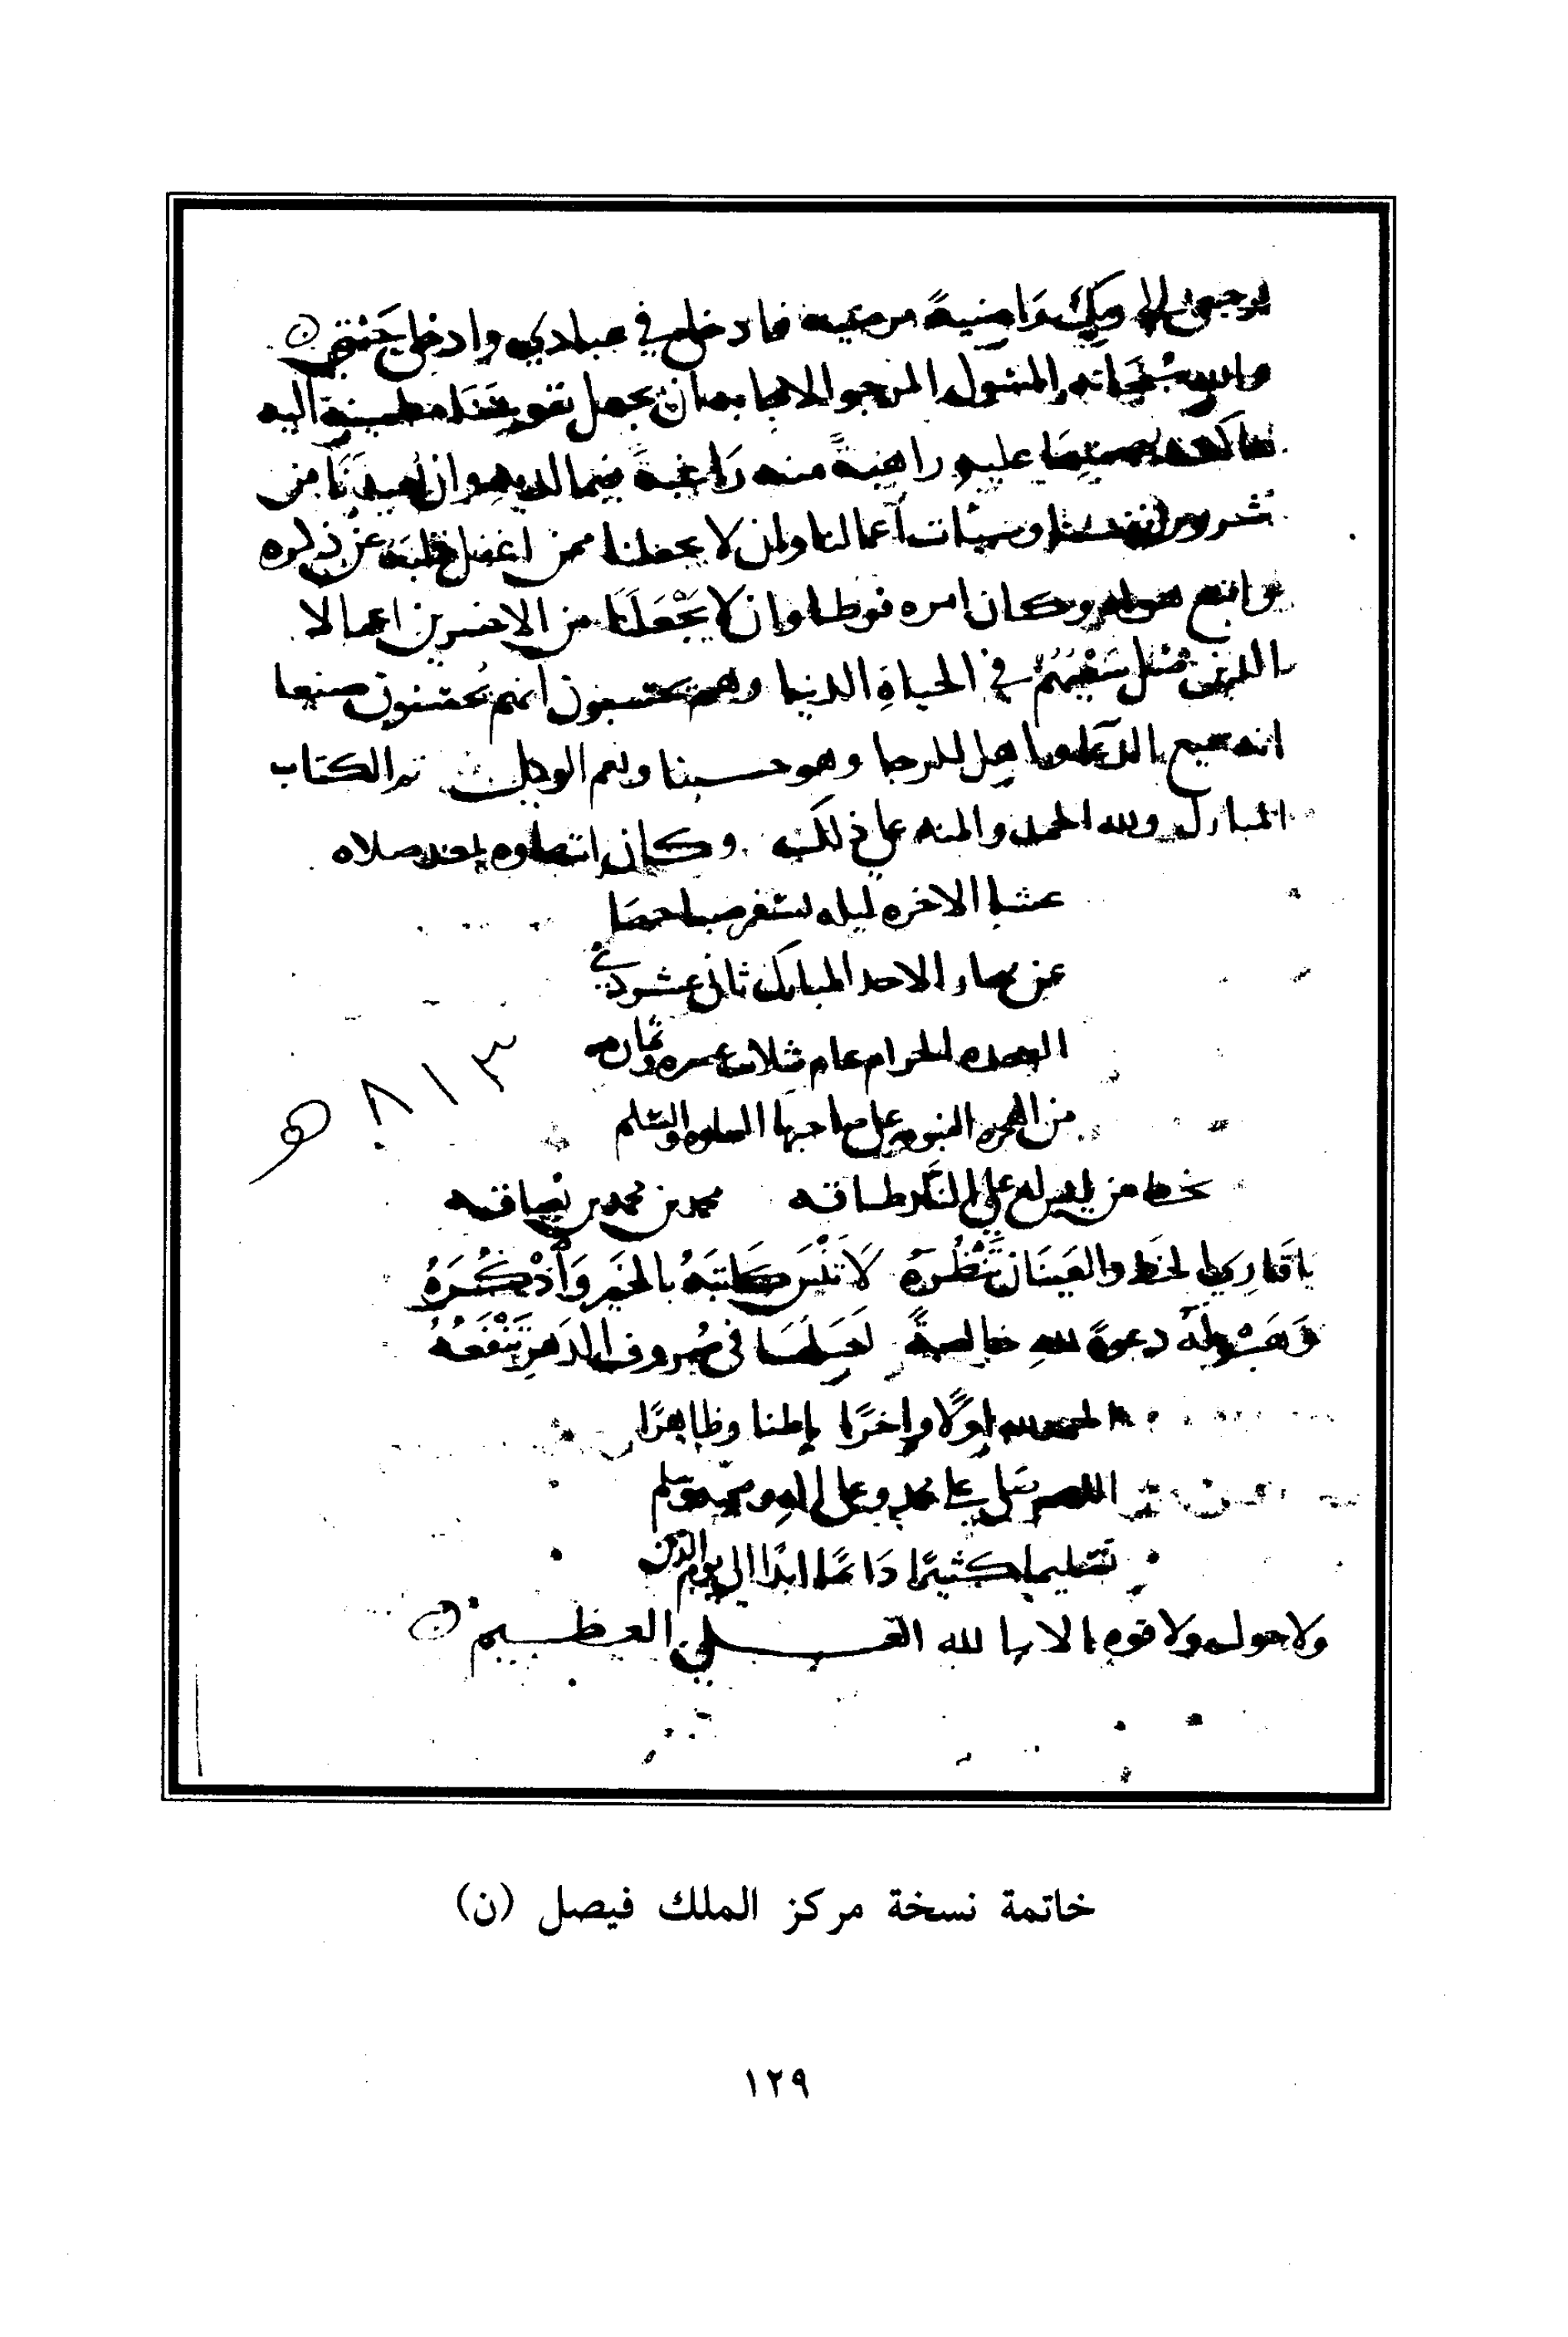 ارجعي الى ربك راضيةً مرضيه فادخلي في عبادي وادخلي جنتي
والله سُبْحَانه المسُول المرجو الاجابه ان يجعل نفوسَنَا مطمينة اليه
عاكفه بهمتها عليه راضيةً منه رَاغبةً فيما لديه وان يُعيذَنَا من
شرور انفسنا وسيئات أعمالنا وان لا يجعلنا ممن اغفل قلبَه عن ذكره
واتبع هواه وكان امره فرطا وان لا يَجْعَلَنَا من الاخسرين اعمالا
الذين ضل سَعْيُهُمْ في الحياةِ الدنيا وهم يحسبون انهم يُحسنون صنعا
انه سميع الدعا واهل الرجا وهو حسبنا ونعم الوكيل تم الكتاب
المبارك ولله الحمد والمنه على ذلك وكان انتهاوه بعد صلاه
عشا الاخره ليله تسفر صباحها
عن نهار الاحد المبارك ثاني عشر ذي
القعده الحرام عام ثلاث عشره وثمان مه
٨١٣ هـ
من الهجره النبويه على صاحبها الصلوه والسّلم
بخط محمد بن محمد بن
يَا قَارِي الخَط والعَينَان تَنْظُرُهُ لَا تَنْسَ كَاتبَهُ بالخَير وَاذْكُرَهُ
وَهَبْ لَهُ دعوةً للهِ خالصةً لعَلهَا في صُروف الدَهرِ تَنْفَعُهُ
الحمد لله اوّلًا واخرًا باطنا وظاهرًا
اللهم صَل على محمد وعلى اله وصحبه وسَلم
تسليما كثيرًا دَائمًا ابدًا الى يوم الدين
ولا حول ولا قوه الا بالله العلي العظيم
خاتمة نسخة مركز الملك فيصل (ن)
١٢٩